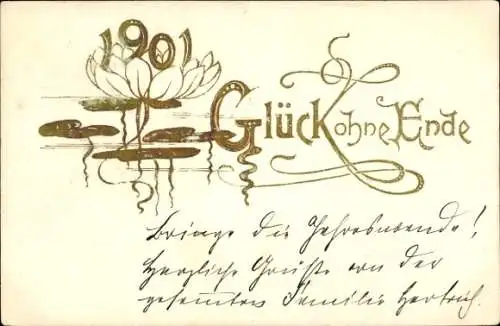 1901
Glück ohne Ende
Bringe die Jahreswende!
Herzliche Grüße von der
gesamten Familie Hertrich.